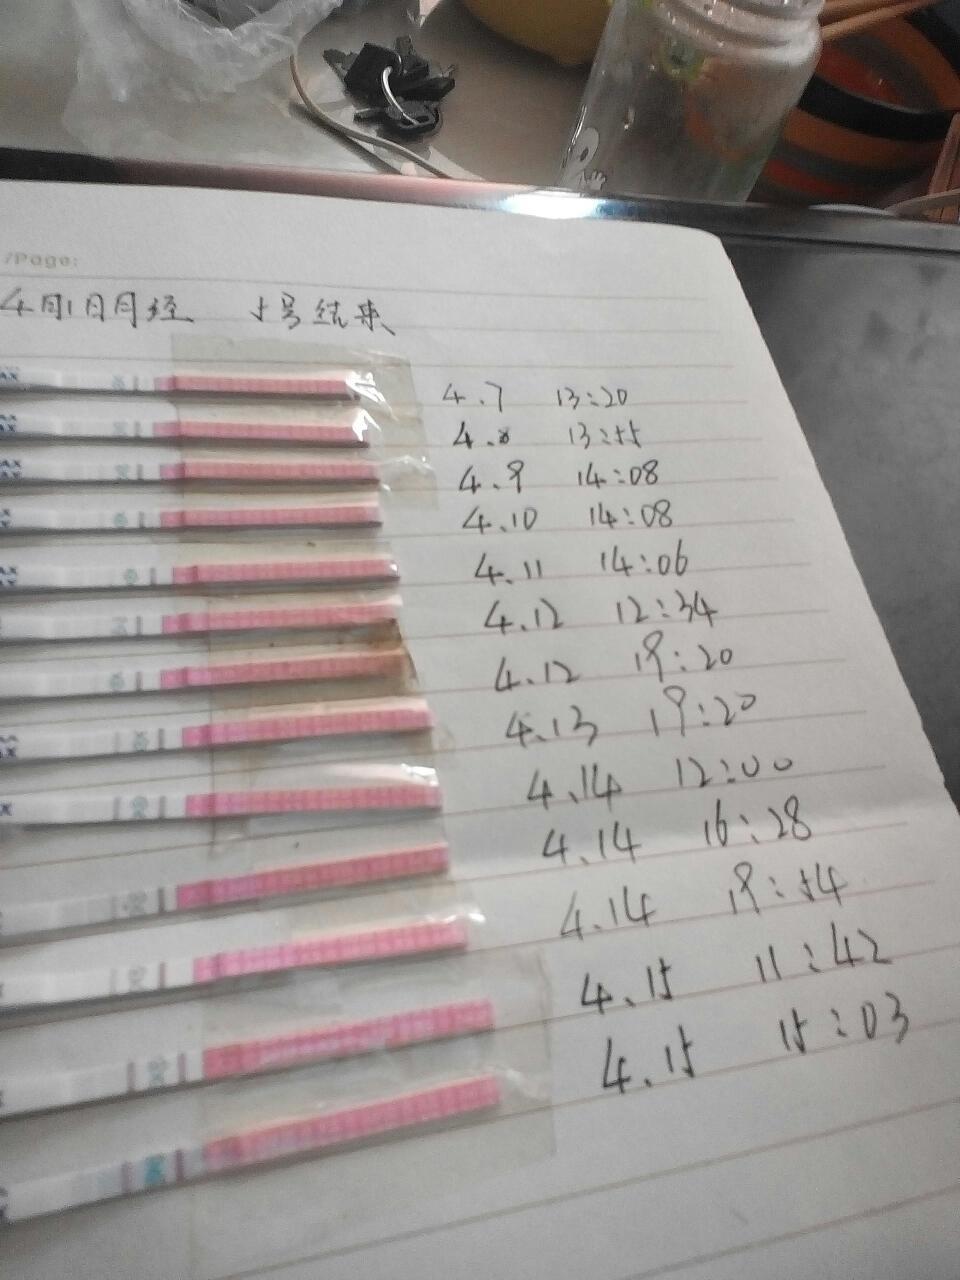 /Page:
4月1日月经 5号结束
4.7 13:20
4.8 13:55
4.9 14:08
4.10 14:08
4.11 14:06
4.12 12:34
4.12 19:20
4.13 19:20
4.14 12:00
4.14 16:28
4.14 19:54
4.15 11:42
4.15 15:03